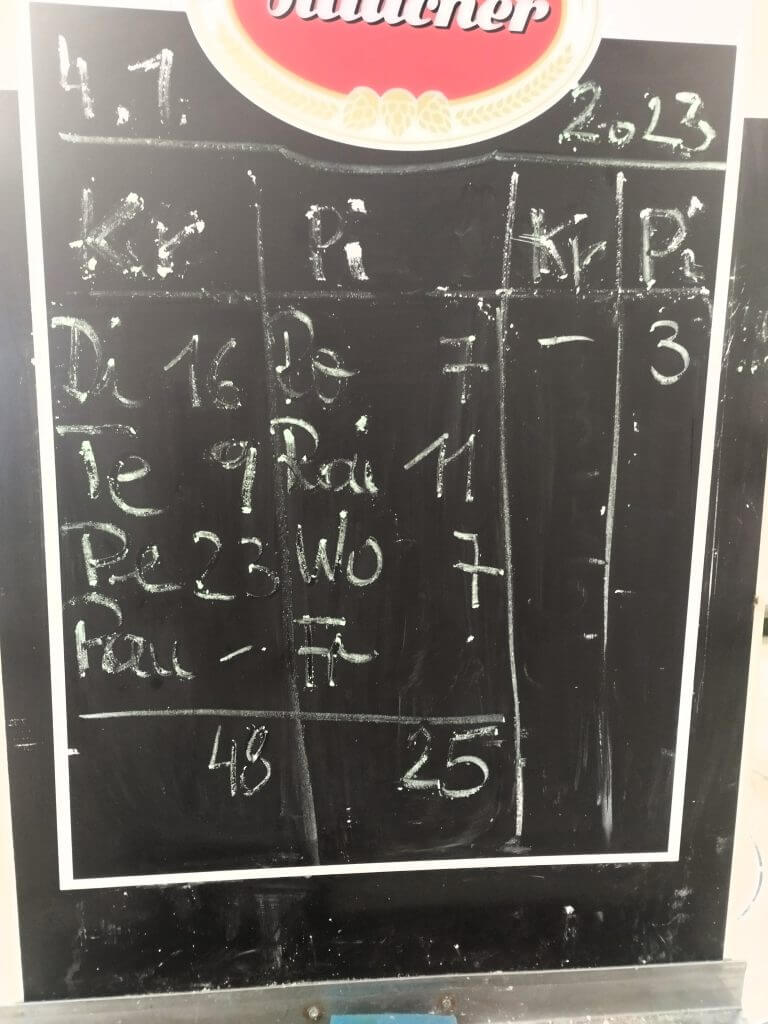 4.1. 2023
Kr Pi Kr Pi
Di 16 Po 7 – 3
Te 9 Rai 11
Pe 23 Wo 7
–
48 25